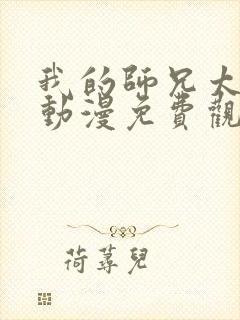 我的師兄太
動漫免費觀
荷蕁兒